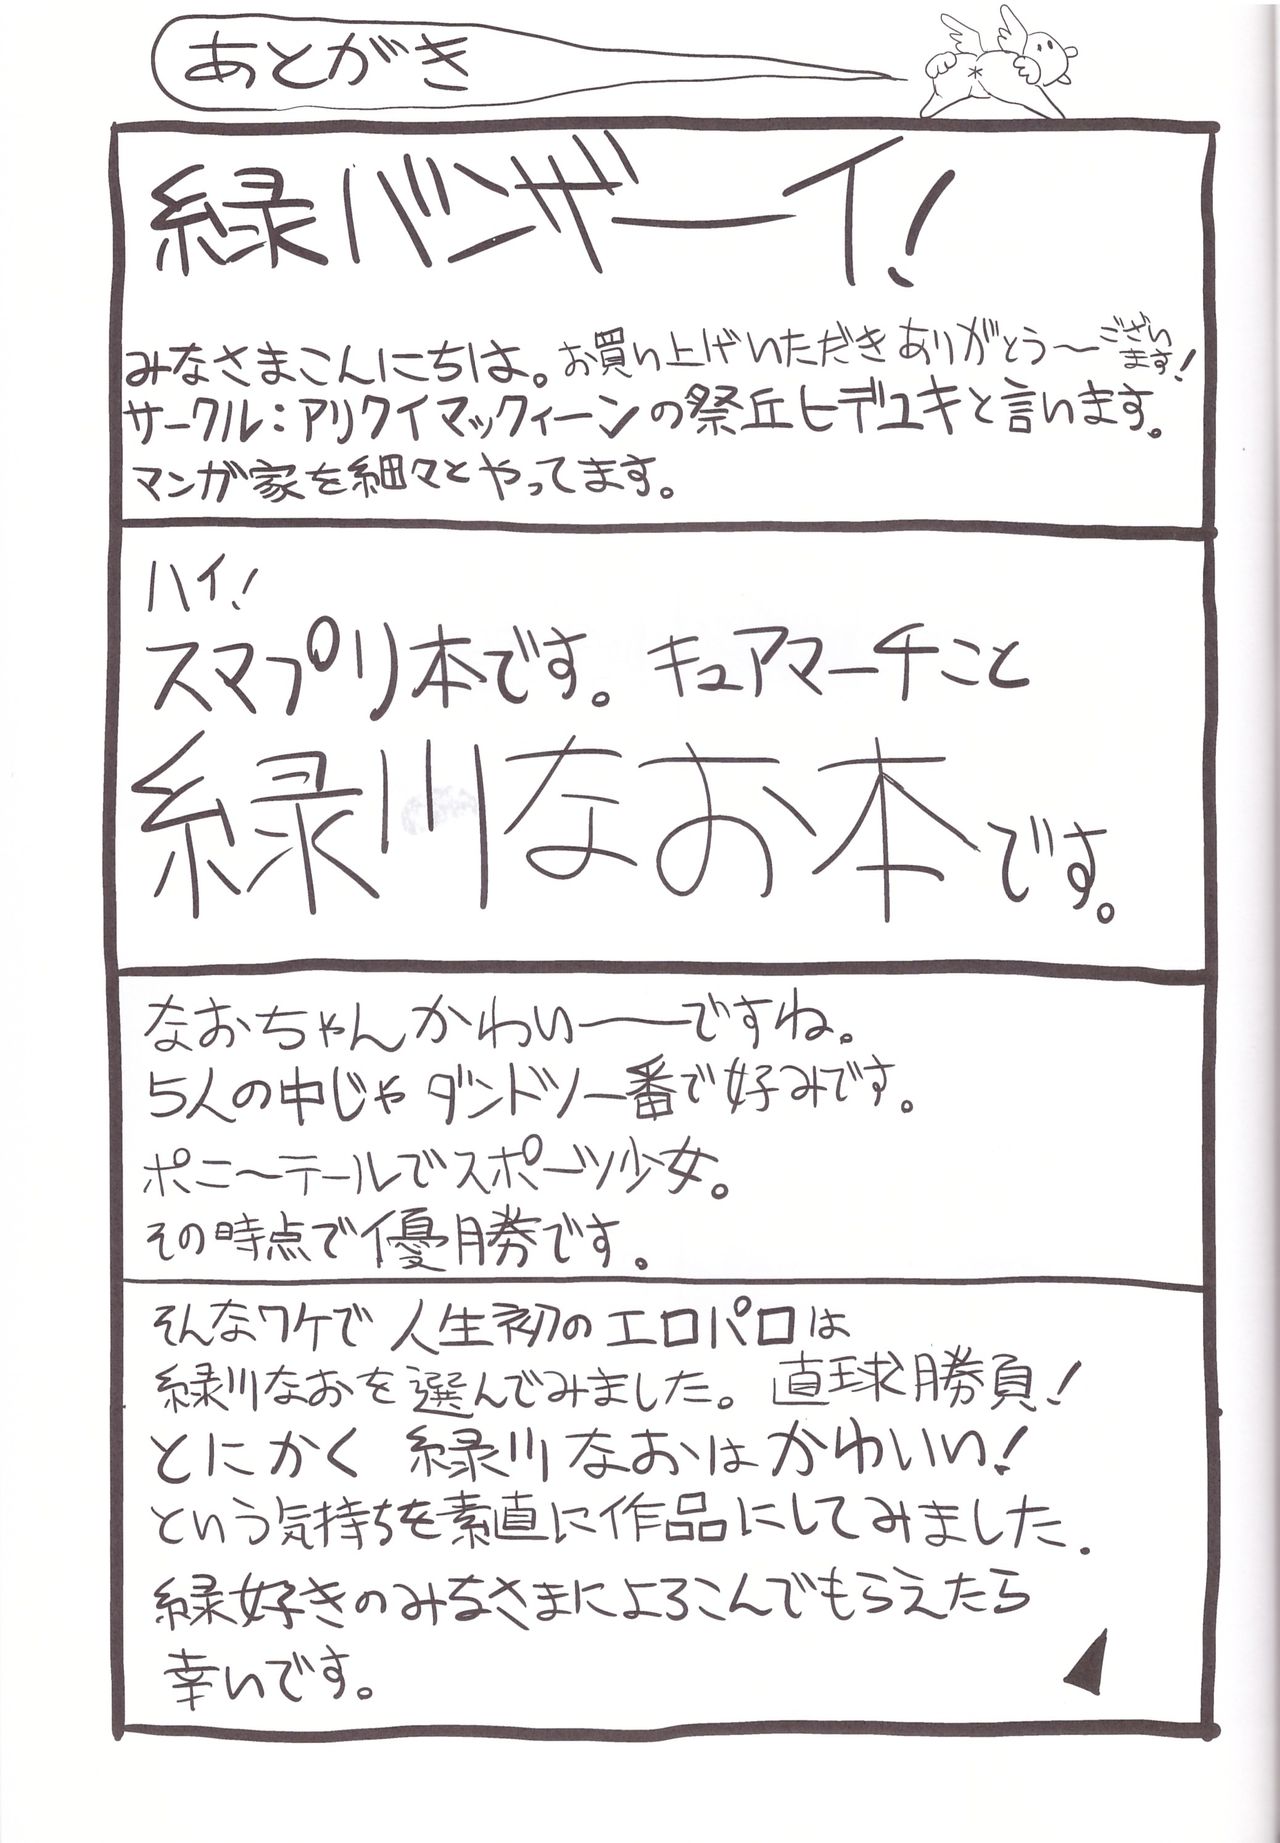 あとがき
緑バンザーイ!
みなさまこんにちは。お買い上げいただきありがとう〜ございます!
サークル:アリクイマックィーンの祭丘ヒデユキと言います。
マンガ家を細々とやってます。
ハイ!
スマプリ本です。キュアマーチこと
緑川なお本です。
なおちゃんかわいーーですね。
5人の中じゃダンドツ一番で好みです。
ポニ〜テールでスポーツ少女。
その時点で優勝です。
そんなワケで人生初のエロパロは
緑川なおを選んでみました。直球勝負!
とにかく緑川なおはかわいい!
という気持ちを素直に作品にしてみました.
緑好きのみなさまによろこんでもらえたら
幸いです。